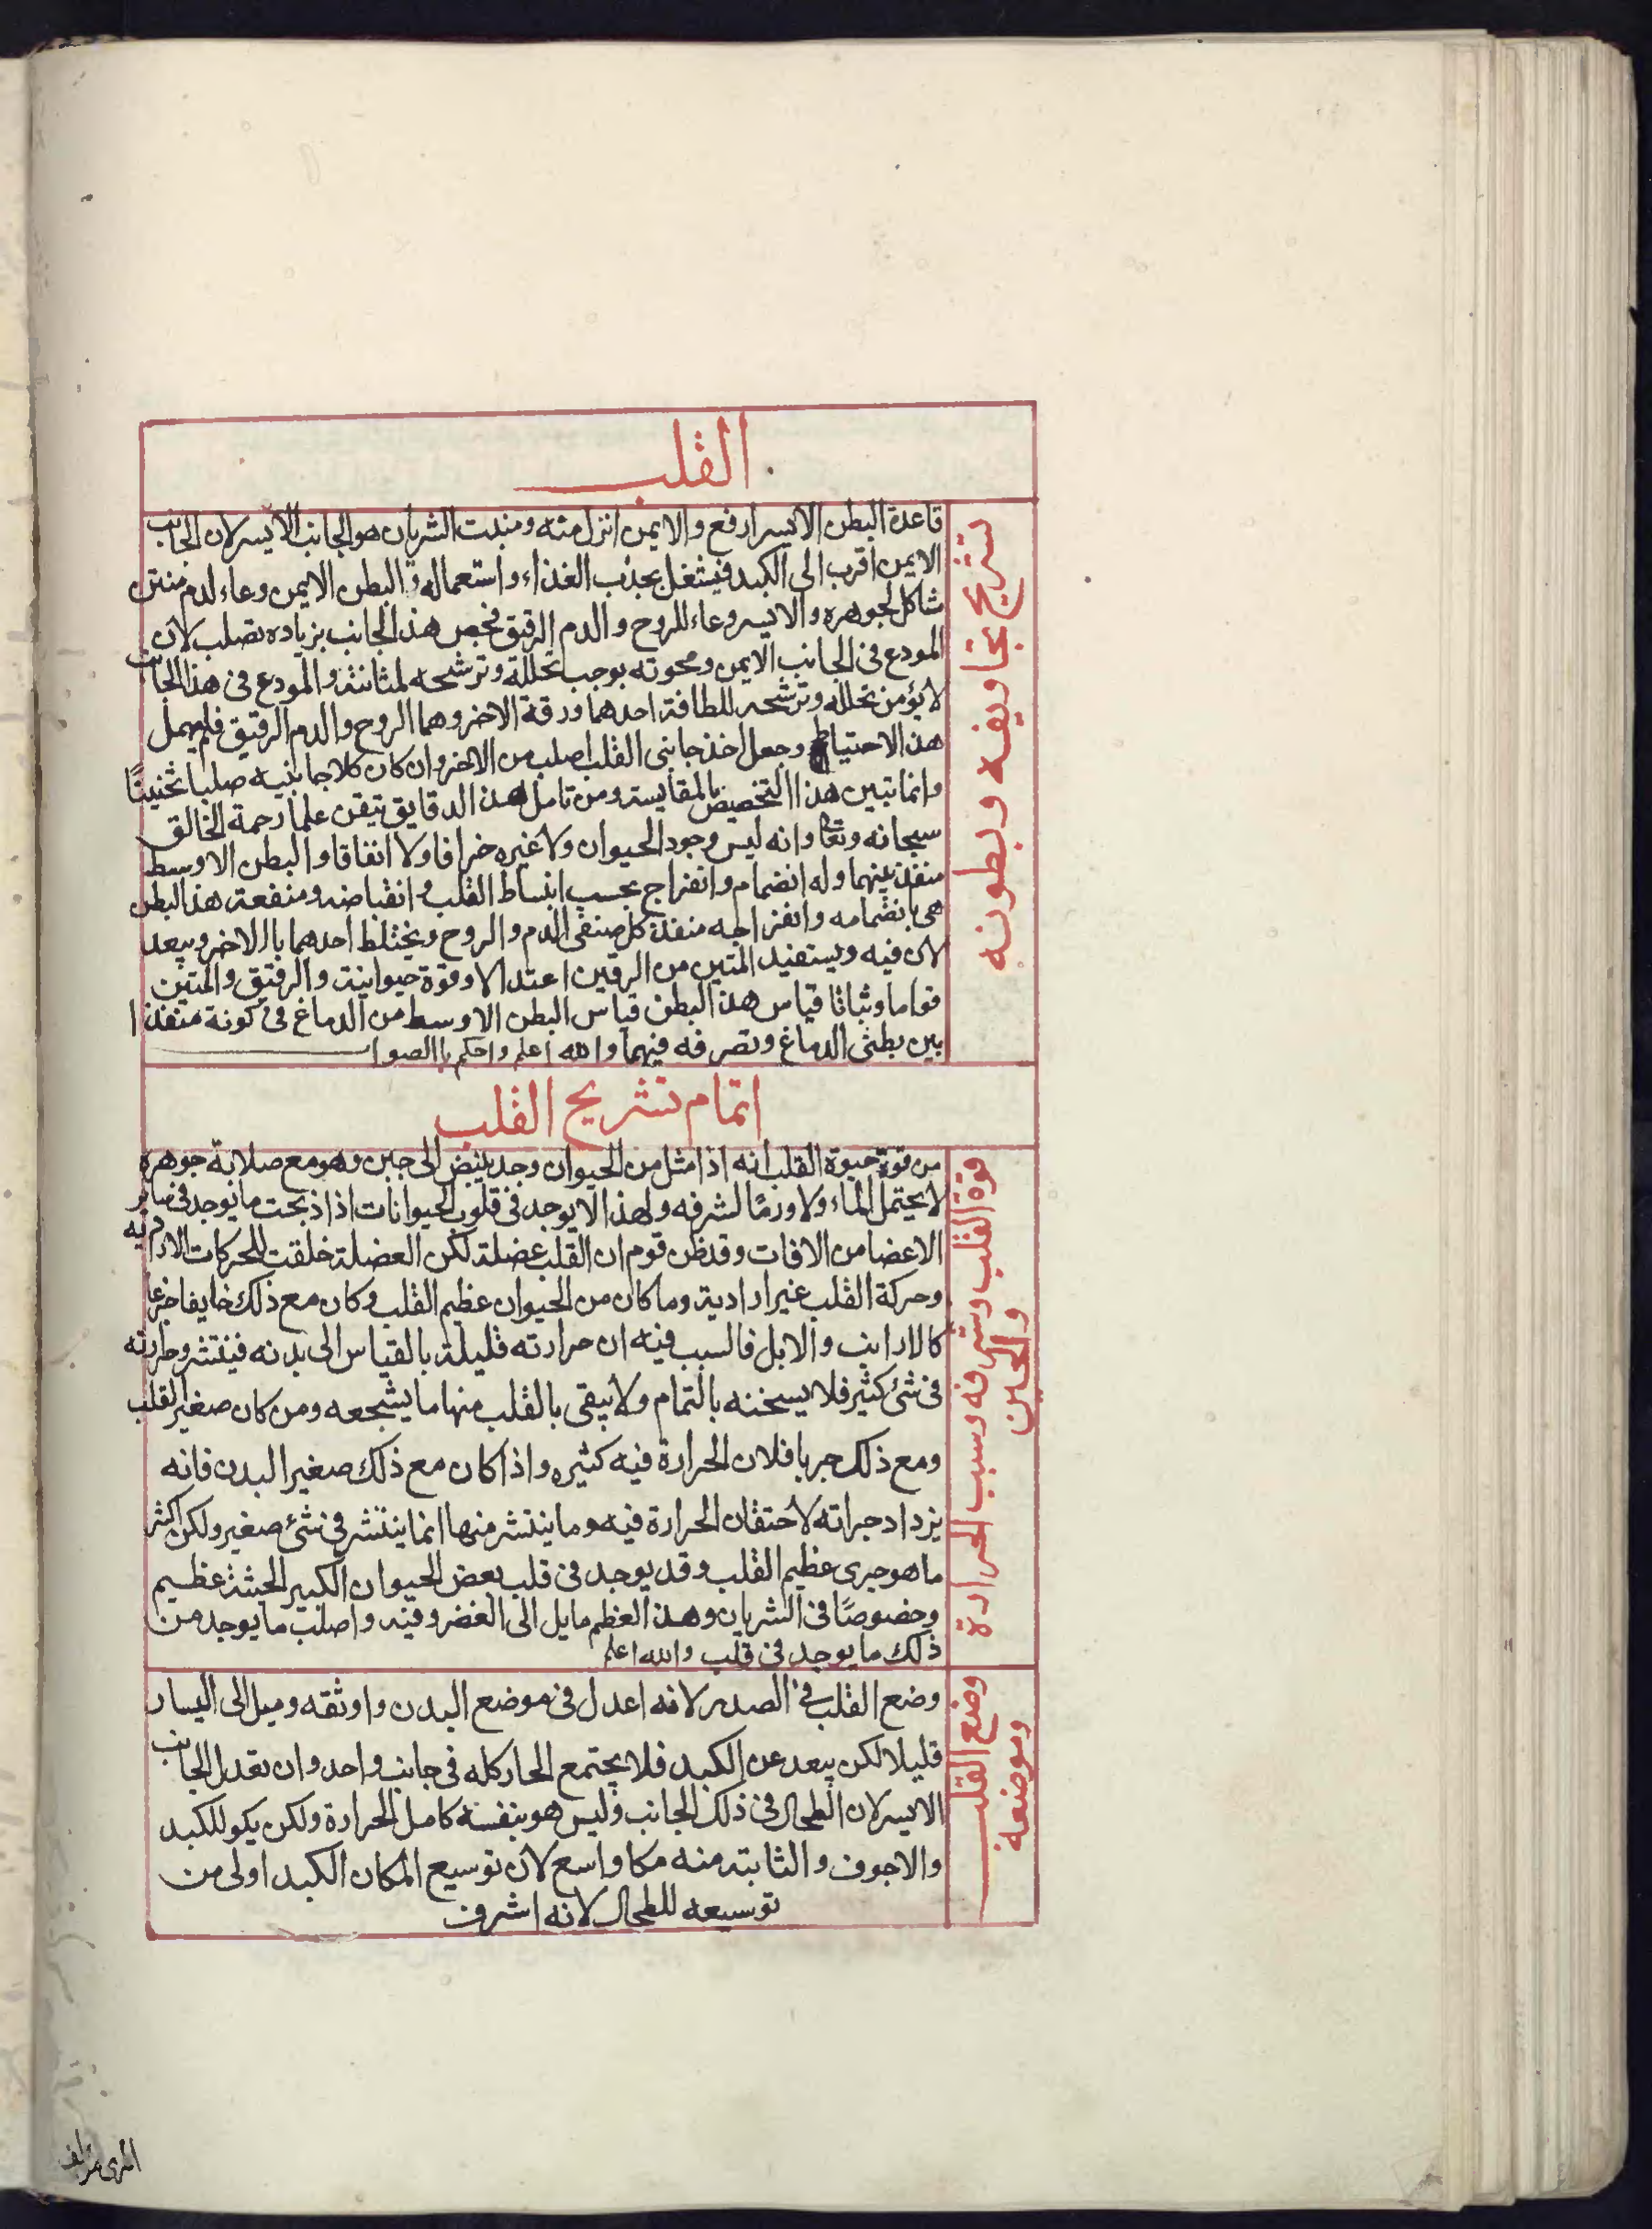 القلب
تشريح تجاويفه وبطونه
قاعدة البطن الايسر ارفع والايمن انزل منه ومنبت الشريان هو الجانب الايسر لان الجانب
الايمن اقرب الى الكبد فيشغل بجذب الغذاء واستعماله والبطن الايمن وعاء لدم متين
شاكل لجوهره والايسر وعاء للروح والدم الرقيق فخص هذا الجانب بزياده تصلب لان
المودع في الجانب الايمن ومحوته بوجب تحلله وترشحه لمثانته والمودع في هذا الجانب
لا يؤمن تحلله وترشحه للطافة احدهما ورقة الاخر وهما الروح والدم الرقيق فلم يهمل
هذا الاحتياط وجعل اخذ جانبي القلب اصلب من الاخر وان كان كلا جانبيه صلبا ثخينًا
وانما تبين هذا التخصيص بالمقايسة ومن تامل هذه الدقايق تيقن علما رحمة الخالق
سبحانه وتعا وانه ليس وجود الحيوان ولا غيره خرافا ولا اتفاقا والبطن الاوسط
منفذ بينهما وله انضمام وانفراج بحسب انبساط القلب وانقباضه ومنفعة هذا البطن
هي بانضمامه وانفراجه منفذ كل صنفي الدم والروح ويختلط احدهما بالاخر ويبعد
لان فيه ويستفيد المتين من الرقين اعتدالا وقوة حيوانية والرقيق والمتين
قواما وثباتا قياس هذا البطن قياس البطن الاوسط من الدماغ في كونه منفذا
بين بطني الدماغ وتصرفه فيهما والله اعلم واحكم باالصوا
اتمام تشريح القلب
قوة القلب وشرفه وسبب الحرارة
والجبن
من قوة حيوة القلب انه اذا مثل من الحيوان وجد ينبض الى حين وهو مع صلابة جوهره
لا يحتمل الماء ولا ورمًا لشرفه ولهذا لا يوجد في قلوب الحيوانات اذا ذبحت ما يوجد في ساير
الاعضا من الافات وقد ظن قوم ان القلب عضلة لكن العضلة خلقت للحركات الارادية
وحركة القلب غير ارادية وما كان من الحيوان عظيم القلب وكان مع ذلك خايفا جزعا
كالارانب والابل فالسبب فيه ان حرارته قليلة بالقياس الى بدنه فينتشر حرارته
في شئ كثير فلا يسخنه بالتمام ولا يبقى بالقلب منها ما يشجعه ومن كان صغير القلب
ومع ذلك جريا فلان الحرارة فيه كثيره واذا كان مع ذلك صغير البدن فانه
يزداد جراته لاحتقان الحرارة فيه وما ينتشر منها انما ينتشر في شئ صغير ولكن اكثر
ما هو جرى عظيم القلب وقد يوجد في قلب بعض الحيوان الكبير الجثة عظيم
وخصوصًا في الشريان وهذا العظم مايل الى الغضروفيه واصلب ما يوجد من
ذلك ما يوجد في قلب والله اعلم
وضع القلب
وموضعه
وضع القلب في الصدر لانه اعدل في موضع البدن واوثقه وميل الى اليسار
قليلا لكن يبعد عن الكبد فلا يجتمع الحار كله في جانب واحد وان تعدل الجانب
الايسر لان الطحال في ذلك الجانب وليس هو بنفسه كامل الحرارة ولكن يكو للكبد
والاجوف والثابتة منه مكا واسع لان توسيع المكان الكبد اولى من
توسيعه للطحال لانه اشرف